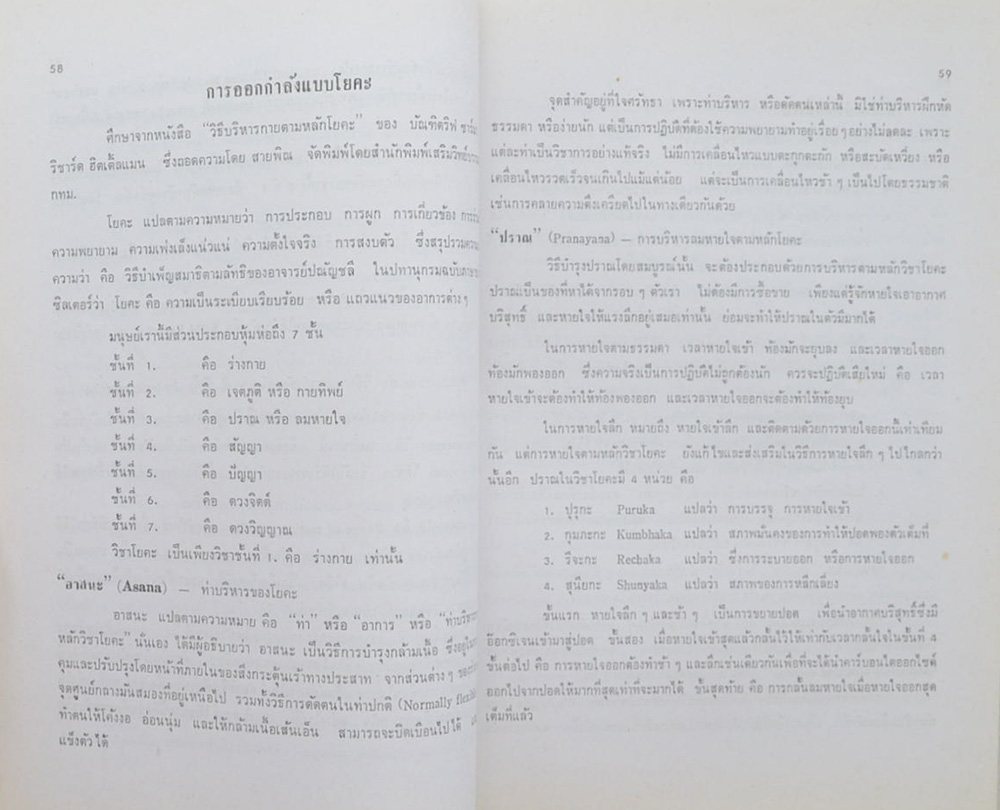 58
การออกกำลังแบบโยคะ
ศึกษาจากหนังสือ “วิธีบริหารกายตามหลักโยคะ” ของ บัณฑิตริฟ
ริชาร์ด ฮิตเติ้ลแมน ซึ่งถอดความโดย สายพิณ จัดพิมพ์โดยสำนักพิมพ์เสริมวิทย์
กทม.
โยคะ แปลตามความหมายว่า การประกอบ การผูก การเกี่ยวข้อง
ความพยายาม ความเพ่งเล็งแน่วแน่ ความตั้งใจจริง การสงบตัว ซึ่งสรุปรวม
ความว่า คือ วิธีบำเพ็ญสมาธิตามลัทธิของอาจารย์ปณัญชลี ในปทานุกรมฉบับ
ชิลเตอร์ว่า โยคะ คือ ความเป็นระเบียบเรียบร้อย หรือ แถวแนวของอาการต่างๆ
มนุษย์เรานี้มีส่วนประกอบหุ้มห่อถึง 7 ชั้น
ชั้นที่ 1. คือ ร่างกาย
ชั้นที่ 2. คือ เจตภูติ หรือ กายทิพย์
ชั้นที่ 3. คือ ปราณ หรือ ลมหายใจ
ชั้นที่ 4. คือ สัญญา
ชั้นที่ 5. คือ ปัญญา
ชั้นที่ 6. คือ ดวงจิตต์
ชั้นที่ 7. คือ ดวงวิญญาณ
วิชาโยคะ เป็นเพียงวิชาชั้นที่ 1. คือ ร่างกาย เท่านั้น
“อาสนะ” (Asana) — ท่าบริหารของโยคะ
อาสนะ แปลตามความหมาย คือ “ท่า” หรือ “อาการ” หรือ “ท่าบริหาร
หลักวิชาโยคะ” นั่นเอง ได้มีผู้อธิบายว่า อาสนะ เป็นวิธีการบำรุงกล้ามเนื้อ ซึ่งอยู่
คุมและปรับปรุงโดยหน้าที่ภายในของสิ่งกระตุ้นเร้าทางประสาท จากส่วนต่างๆ
จุดศูนย์กลางมันสมองที่อยู่เหนือไป รวมทั้งวิธีการดัดตนในท่าปกติ (Normally
ทำตนให้โค้งงอ อ่อนนุ่ม และให้กล้ามเนื้อเส้นเอ็น สามารถจะบิดเบือนไปได้
แข็งตัวได้
59
จุดสำคัญอยู่ที่ใจศรัทธา เพราะท่าบริหาร หรือดัดตนเหล่านี้ มิใช่ท่าบริหารฝึกหัด
ธรรมดา หรือง่ายนัก แต่เป็นการปฏิบัติที่ต้องใช้ความพยายามทำอยู่เรื่อยๆอย่างไม่ลดละ เพราะ
แต่ละท่าเป็นวิชาการอย่างแท้จริง ไม่มีการเคลื่อนไหวแบบตะกุกตะกัก หรือสะบัดเหวี่ยง หรือ
เคลื่อนไหวรวดเร็วจนเกินไปแม้แต่น้อย แต่จะเป็นการเคลื่อนไหวช้า ๆ เป็นไปโดยธรรมชาติ
เช่นการคลายความตึงเครียดไปในทางเดียวกันด้วย
“ปราณ” (Pranayana) — การบริหารลมหายใจตามหลักโยคะ
วิธีบำรุงปราณโดยสมบูรณ์นั้น จะต้องประกอบด้วยการบริหารตามหลักวิชาโยคะ
ปราณเป็นของที่หาได้จากรอบ ๆ ตัวเรา ไม่ต้องมีการซื้อขาย เพียงแต่รู้จักหายใจเอาอากาศ
บริสุทธิ์ และหายใจให้แรงลึกอยู่เสมอเท่านั้น ย่อมจะทำให้ปราณในตัวมีมากได้
ในการหายใจตามธรรมดา เวลาหายใจเข้า ท้องมักจะยุบลง และเวลาหายใจออก
ท้องมักพองออก ซึ่งความจริงเป็นการปฏิบัติไม่ถูกต้องนัก ควรจะปฏิบัติเสียใหม่ คือ เวลา
หายใจเข้าจะต้องทำให้ท้องพองออก และเวลาหายใจออกจะต้องทำให้ท้องยุบ
ในการหายใจลึก หมายถึง หายใจเข้าลึก และติดตามด้วยการหายใจออกนี้เท่าเทียม
กัน แต่การหายใจตามหลักวิชาโยคะ ยังแก้ไขและส่งเสริมในวิธีการหายใจลึก ๆ ไปไกลกว่า
นั้นอีก ปราณในวิชาโยคะมี 4 หน่วย คือ
1. ปุรุกะ Puruka แปลว่า การบรรจุ การหายใจเข้า
2. กุมภะกะ Kumbhaka แปลว่า สภาพมั่นคงของการทำให้ปอดพองตัวเต็มที่
3. รีจะกะ Rechaka แปลว่า ซึ่งการระบายออก หรือการหายใจออก
4. สุนียกะ Shunyaka แปลว่า สภาพของการหลีกเลี่ยง
ขั้นแรก หายใจลึก ๆ และช้า ๆ เป็นการขยายปอด เพื่อนำอากาศบริสุทธิ์ซึ่งมี
อ๊อกซิเจนเข้ามาสู่ปอด ขั้นสอง เมื่อหายใจเข้าสุดแล้วกลั้นไว้ให้เท่ากับเวลากลั้นใจในขั้นที่ 4
ขั้นต่อไป คือ การหายใจออกต้องทำช้า ๆ และลึกเช่นเดียวกันเพื่อที่จะได้นำคาร์บอนไดออกไซด์
ออกไปจากปอดให้มากที่สุดเท่าที่จะมากได้ ขั้นสุดท้าย คือ การกลั้นลมหายใจเมื่อหายใจออกสุด
เต็มที่แล้ว